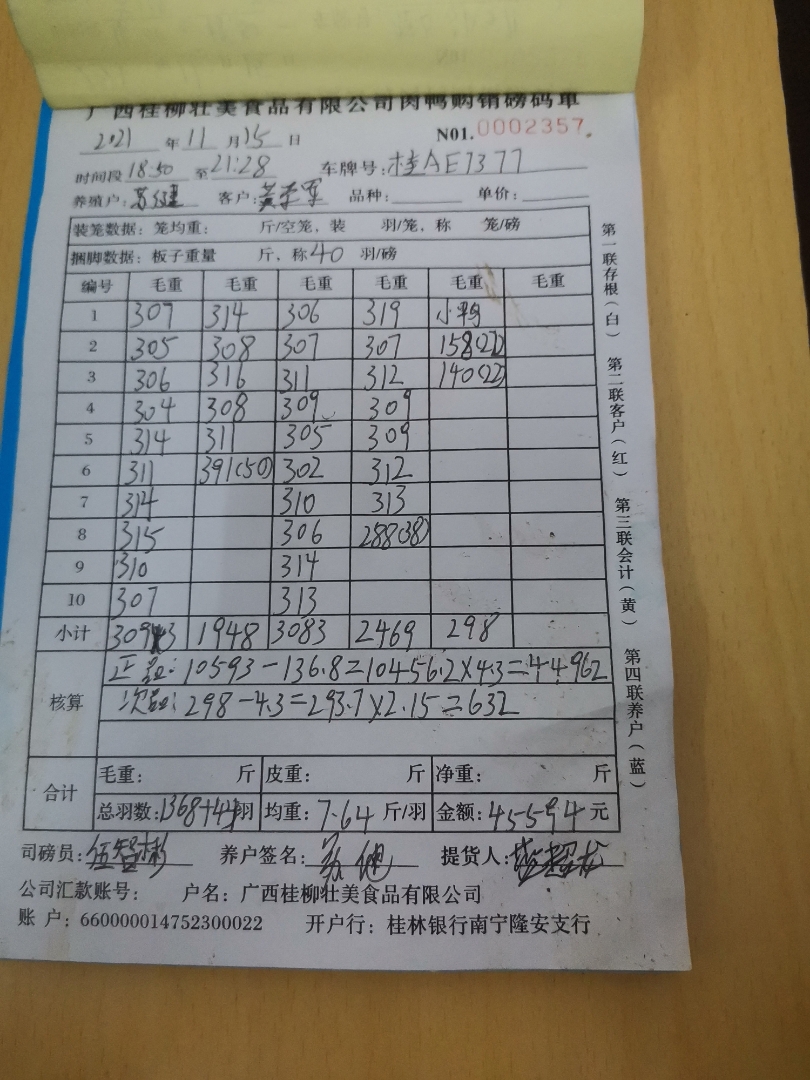 广西桂柳壮美食品有限公司肉鸭购销磅码单
2021 年 11 月 15 日 N01. 0002357
时间段 18:50 至 21:28 车牌号: 桂AE7377
养殖户: 苏健 客户: 品种: 单价:
装笼数据: 笼均重: 斤/空笼, 装 羽/笼, 称 笼/磅
捆脚数据: 板子重量 斤, 称 40 羽/磅
编号 毛重 毛重 毛重 毛重 毛重 毛重
1 307 314 306 319 小鸭
2 305 308 307 307 158(22)
3 306 316 311 312 140(22)
4 304 308 309 309
5 314 311 305 309
6 311 391(50) 302 312
7 314 310 313
8 315 306 288(38)
9 310 314
10 307 313
小计 3093 1948 3083 2469 298
核算 正品: 10593-136.8=10456.2×4.3=44962
次品: 298-4.3=293.7×2.15=632
合计 毛重: 斤 皮重: 斤 净重: 斤
总羽数: 1368+44羽 均重: 7.64 斤/羽 金额: 45594 元
司磅员: 伍智彬 养户签名: 苏健 提货人:
公司汇款账号: 户名: 广西桂柳壮美食品有限公司
账 户: 660000014752300022 开户行: 桂林银行南宁隆安支行
第一联存根(白) 第二联客户(红) 第三联会计(黄) 第四联养户(蓝)